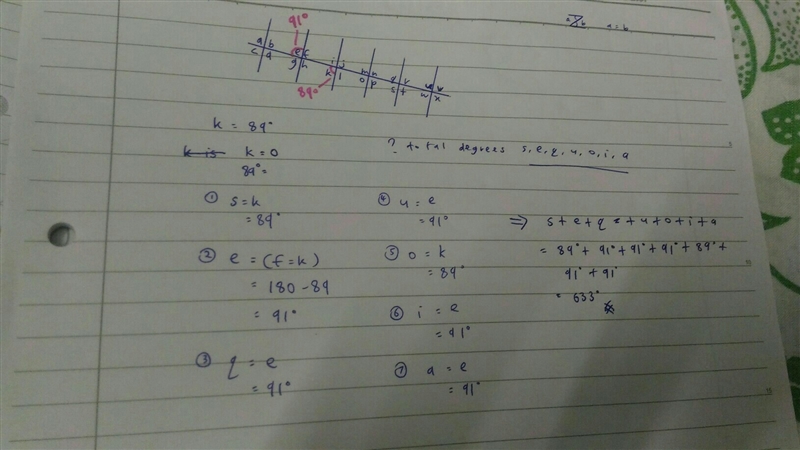 a b a = b
91°
a b e f i j m n q r u v
c d g h k l o p s t w x
89°
k = 89°
k is k = o
89° =
? total degrees s, e, q, u, o, i, a
① s = k
= 89°
② e = (f = k)
= 180 - 89
= 91°
③ q = e
= 91°
④ u = e
= 91°
⑤ o = k
= 89°
⑥ i = e
= 91°
⑦ a = e
= 91°
⇒ s + e + q + u + o + i + a
= 89° + 91° + 91° + 91° + 89° +
91° + 91°
= 633°